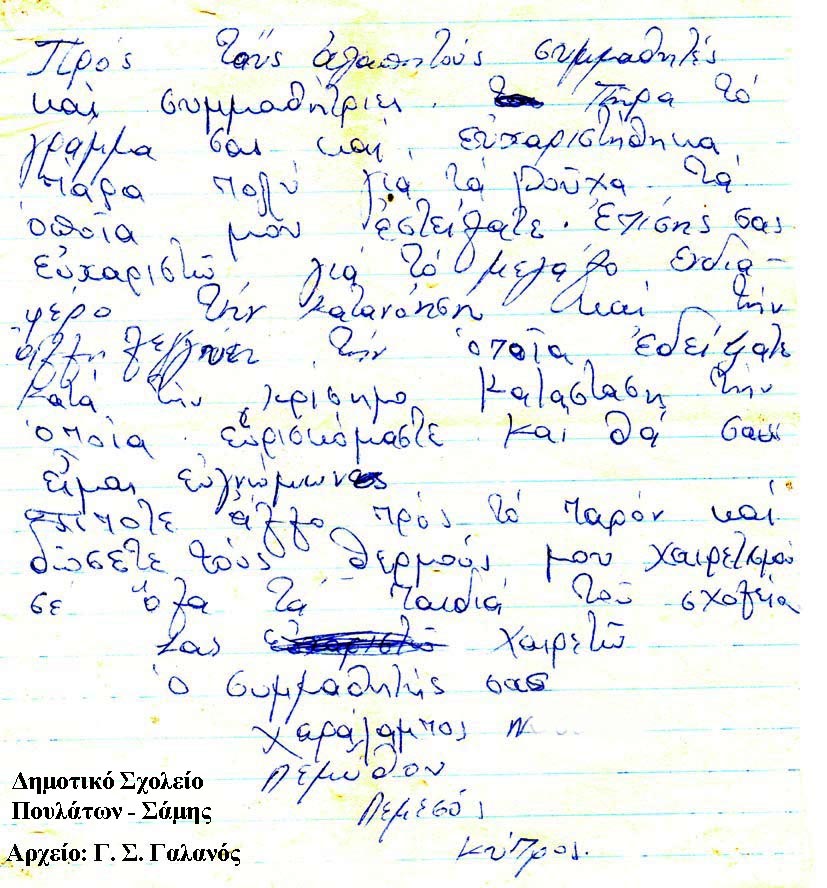 Πρός τούς ἀγαπητούς συμμαθητές
καί συμμαθήτριες. Πῆρα τό
γράμμα σας καί εὐχαριστήθηκα
πάρα πολύ γιά τά ροῦχα τά
ὁποῖα μου ἐστείλατε. Ἐπίσης σας
εὐχαριστῶ γιά τό μεγάλο ενδια-
φέρο τήν κατανόηση καί τήν
ἀλληλεγγύει τήν ὁποῖα ἐδείξατε
κατά τήν κρίσημο κατάσταση τήν
ὁποία εὑρισκόμαστε καί θά σας
εἶμαι εὐγνώμων
τίποτε ἄλλο πρός τό παρόν καί
δώσετε τούς θερμούς μου χαιρετισμού
σέ ὅλα τά παιδιά τοῦ σχολεία
σας χαιρετῶ
ὁ συμμαθητής σας
Χαράλαμπος Ν
Λεμύθου
Λεμεσός
Κύπρος.
Δημοτικό Σχολείο
Πουλάτων - Σάμης
Αρχείο: Γ. Σ. Γαλανός